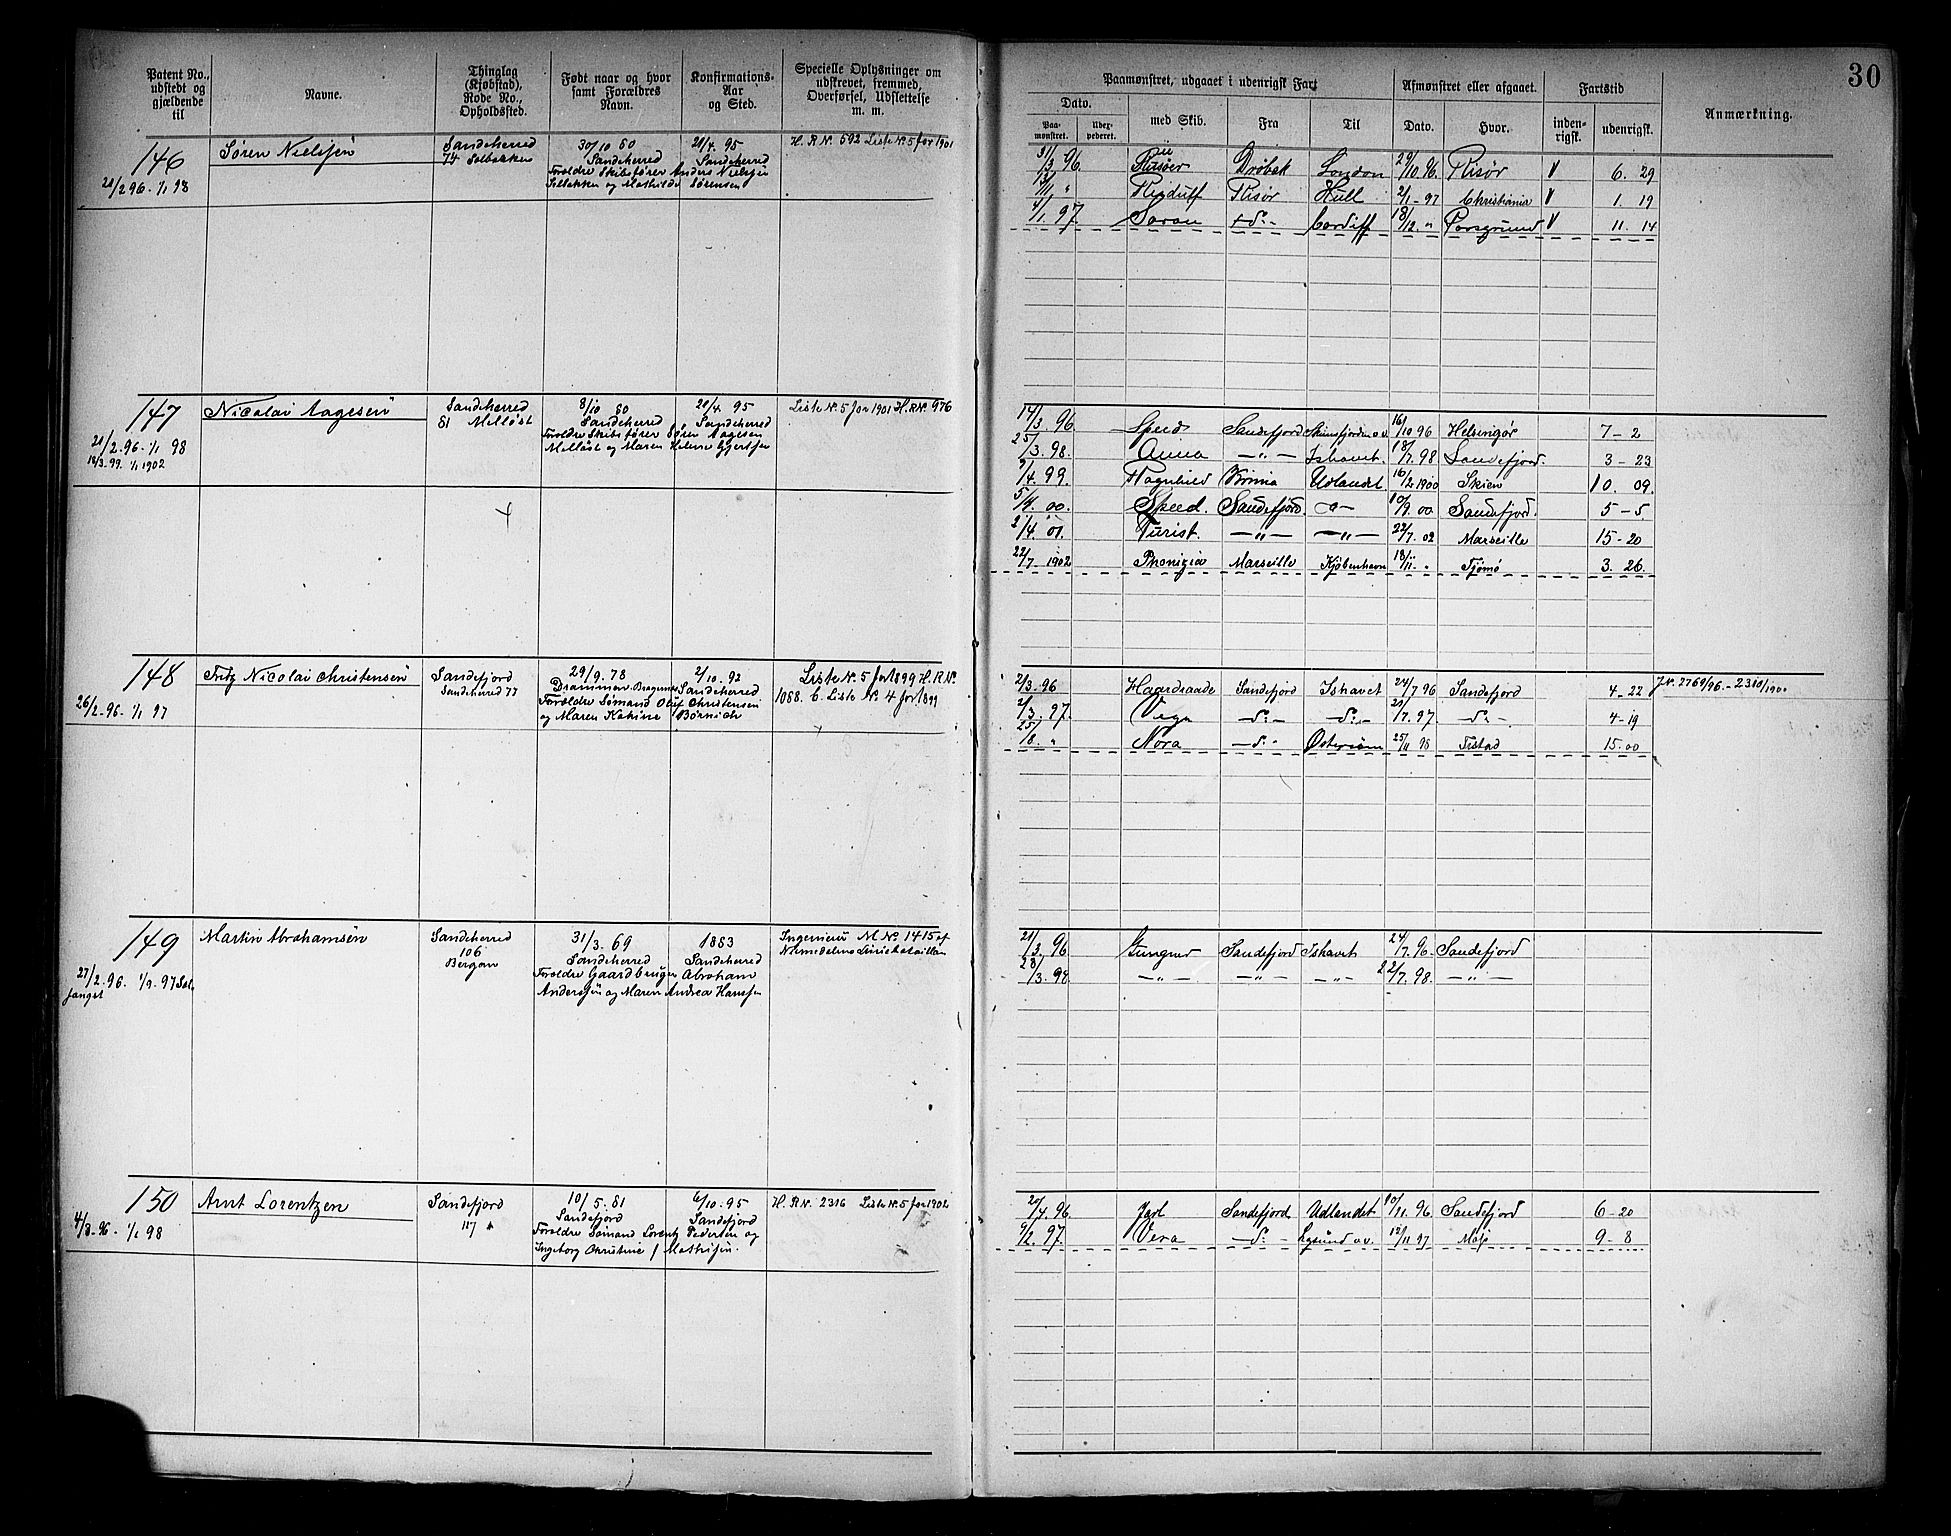 30
Patent No., udstedt og gjældende til
Navne.
Thinglag (Kjøbstad), Rode No., Opholdssted.
Født naar og hvor samt Forældres Navn.
Konfirmations-Aar og Sted.
Specielle Oplysninger om udskrevet, fremmed, Overførsel, Udslettelse m. m.
Paamønstret, udgaaet i udenrigsk Fart
Afmønstret eller afgaaet.
Fartstid
Anmærkning.
Dato.
Paamønstret.
Udexpederet.
med Skib.
Fra
Til
Dato.
Hvor.
indenrigsk.
udenrigsk.
146
21/2 96 - 1/1 98
Søren Nielsen
Sandeherred
74 Solbakken
30/10 80
Sandeherred
Foreldre Skibsfører Anders Nielsen
Solbakken og Mathilde Sørensen
21/4. 95
Sandeherred
H.R.N. 592 Liste N. 5 for 1901
31/3 96. Drøbak London 29/10 96. Risør V 6. 29
Risør Hull 2/1 - 97 Christiania V 1. 19
4/1. 97. Saron - d: - Cardiff 18/12. " Porsgrund V 11. 14
147
21/2. 96. 1/1 98
18/3. 99. 1/1 1902
Nicolai Aagesen
Sandeherred
81 Melløst
8/10 80
Sandeherred
Foreldre Skibsfører Søren Aagesen
Melløst og Maren Helene Gjertsen
21/4. 95
Sandeherred
Liste N. 5 for 1901 H.R.N. 976
14/3. 96. Speed Sandefjord 16/10 96 Helsingør 7 - 2
25/3. 98. Anna - " - Ishavet. 18/7. 98 Sandefjord. 3 - 23
4. 99. Ragnhild Udlandet 16/2 1900 Skien 10. 09.
5/4. 00. Speed. Sandefjord. - " - 10/9. 00 Sandefjord. 5 - 5
2/4. 01. Turist. - " - - " - 22/7. 02 Marseille 15 - 20
22/7 1902 Phønizia Marseille Kjøbenhavn 18/11. " Tjømø 3. 26.
148
26/2. 96. 1/1 97
Fritz Nicolai Christensen
Sandefjord
Sandeherred 77
29/9. 78
Drammen Bragernes
Foreldre Sømand Oluf Christensen
og Maren Katrine Børnich
2/10. 92
Sandeherred
Liste N. 5 for 1899 H.R.N.
1088. C. Liste N. 4 for 1899
2/3. 96 Haardraade Sandefjord Ishavet 24/7 96 Sandefjord 4 - 22 J.N. 2769/96. - 2310/1900
2/3. 97. Vega - d: - - d: - 20/7. 97 - d: - 4 - 19
25/8. " Nora - d: - Østersøen 25/11 98 15. 00
149
27/2. 96. 1/9. 97 Sæl-
fangst
Martin Abrahamsen
Sandeherred
106
Bergan
31/3. 69
Sandeherred
Foreldre Gaardbruger Abraham
Andersen og Maren Andrea Hansen
1883
Sandeherred
Ingeniør M N. 1415 af
21/3. 96 Gungner Sandefjord Ishavet 24/7. 96. Sandefjord
28/3. 98. - " - - " - - " - 22/7. 98. - " -
150
4/3. 96. 1/1 98
Arnt Lorentzen
Sandefjord
117
10/5. 81
Sandefjord
Foreldre Sømand Lorentz Pedersen og
Ingeborg Christine f Mathisen.
6/10. 95
Sandefjord
H.R.N. 2316 Liste N. 5 for 1902
20/4. 96 Jarl Sandefjord Udlandet 10/11. 96. Sandefjord 6 - 20
9/2. 97. Vera - d: - 12/11 97 9 - 8